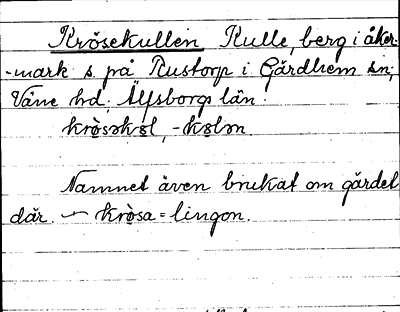 Krösekullen Kulle, berg i åker-
-mark s. på Rustorp i Gärdhem sn;
Väne hd; Älfsborgs län.
Namnet även brukat om gärdet
där. — krösa = lingon.